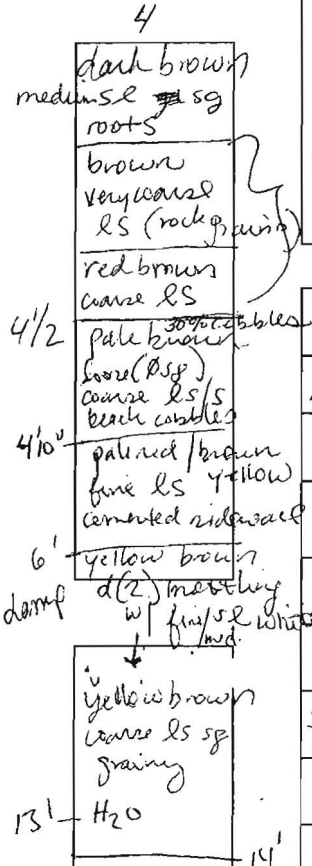 4
dark brown
medium sl sg
roots
brown
very coarse
ls (rock grains)
red brown
coarse ls
4 1/2
30% cobbles
pale brown
loose (Ø sg)
coarse ls/s
beach cobbles
4'10"
pale red/brown
yellow
fine ls
cemented sidewall
6'
yellow brown
damp
d(2) mottling
w/ fine/med. sl white
yellow brown
coarse ls sg
grainy
13' H2O
14'